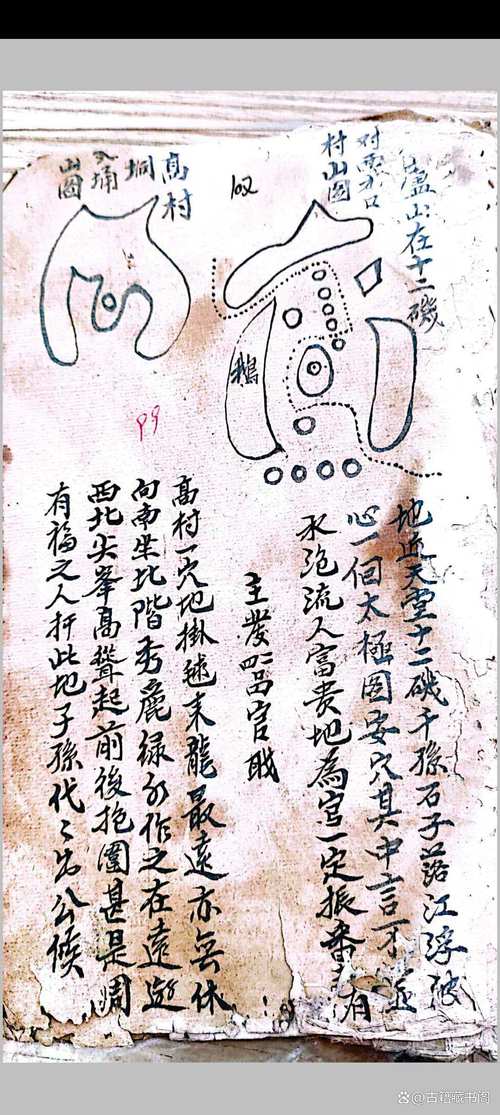 虚山在十二磯
对面水口
村山图
鵝
地近天堂十二磯千孫石子落江浮波
心一個太極图安穴其中言不虚
水泡流人富贵地為官一定振番有
主發四品官戝
高村
垌
入埇
山图
高村一穴地掛毬末龍最遠亦無休
向南坐北階秀麗绿水作之在遠遊
西北尖峯高聳起前後抱圍甚是周
有福之人扦此地子孫代々出公候
99
@古籍藏书阁